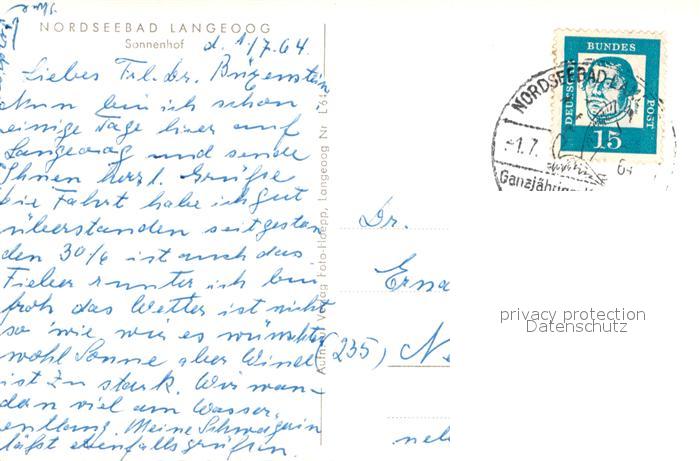 NORDSEEBAD LANGEOOG
Sonnenhof
d. 1/7.64.
Liebes Frl. dr.
Nun bin ich schon
einige Tage hier auf
Langeoog und sende
Ihnen herzl. Grüße
die Fahrt habe ich gut
überstanden seit gestern
den 30/6 ist auch das
Fieber runter ich bin
froh das Wetter ist nicht
so wie wir es wünschten
wohl Sonne aber Wind
ist zu stark. Wir wan-
dern viel am Wasser
entlang. Meine Schwägerin
läßt ebenfalls grüßen.
Aufn. u. Verlag Foto-Hoepp, Langeoog Nr. L 6
BUNDES
DEUTSCHE
POST
15
NORDSEEBAD-LA
-1.7.
64
Ganzjährig
Dr.
Erna
(235) N.
privacy protection
Datenschutz